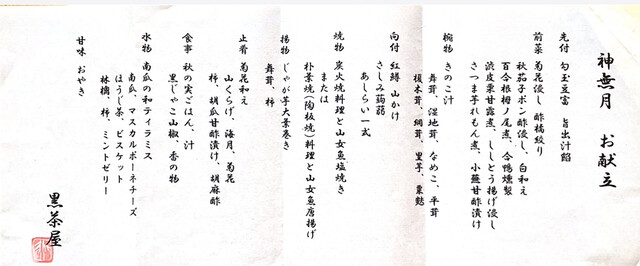 神無月 お献立
先付 勾玉豆富 旨出汁餡
前菜 菊花浸し 酢橘絞り
秋茄子ポン酢浸し、白和え
百合根柚ノ尾煮、合鴨燻製
渋皮栗甘露煮、ししとう揚げ浸し
さつま芋れもん煮、小蕪甘酢漬け
椀物 きのこ汁
舞茸、湿地茸、なめこ、平茸
榎木茸、絹茸、里芋、粟麩
向付 紅鱒 山かけ
さしみ蒟蒻
あしらい一式
焼物 炭火焼料理と山女魚塩焼き
または
朴葉焼(陶板焼)料理と山女魚唐揚げ
揚物 じゃが芋大葉巻き
舞茸、柿
止肴 菊花和え
山くらげ、海月、菊花
柿、胡瓜甘酢漬け、胡麻酢
食事 秋の実ごはん、汁
黒じゃこ山椒、香の物
水物 南瓜の和ティラミス
南瓜、マスカルポーネチーズ
ほうじ茶、ビスケット
林檎、柿、ミントゼリー
甘味 おやき
黒茶屋